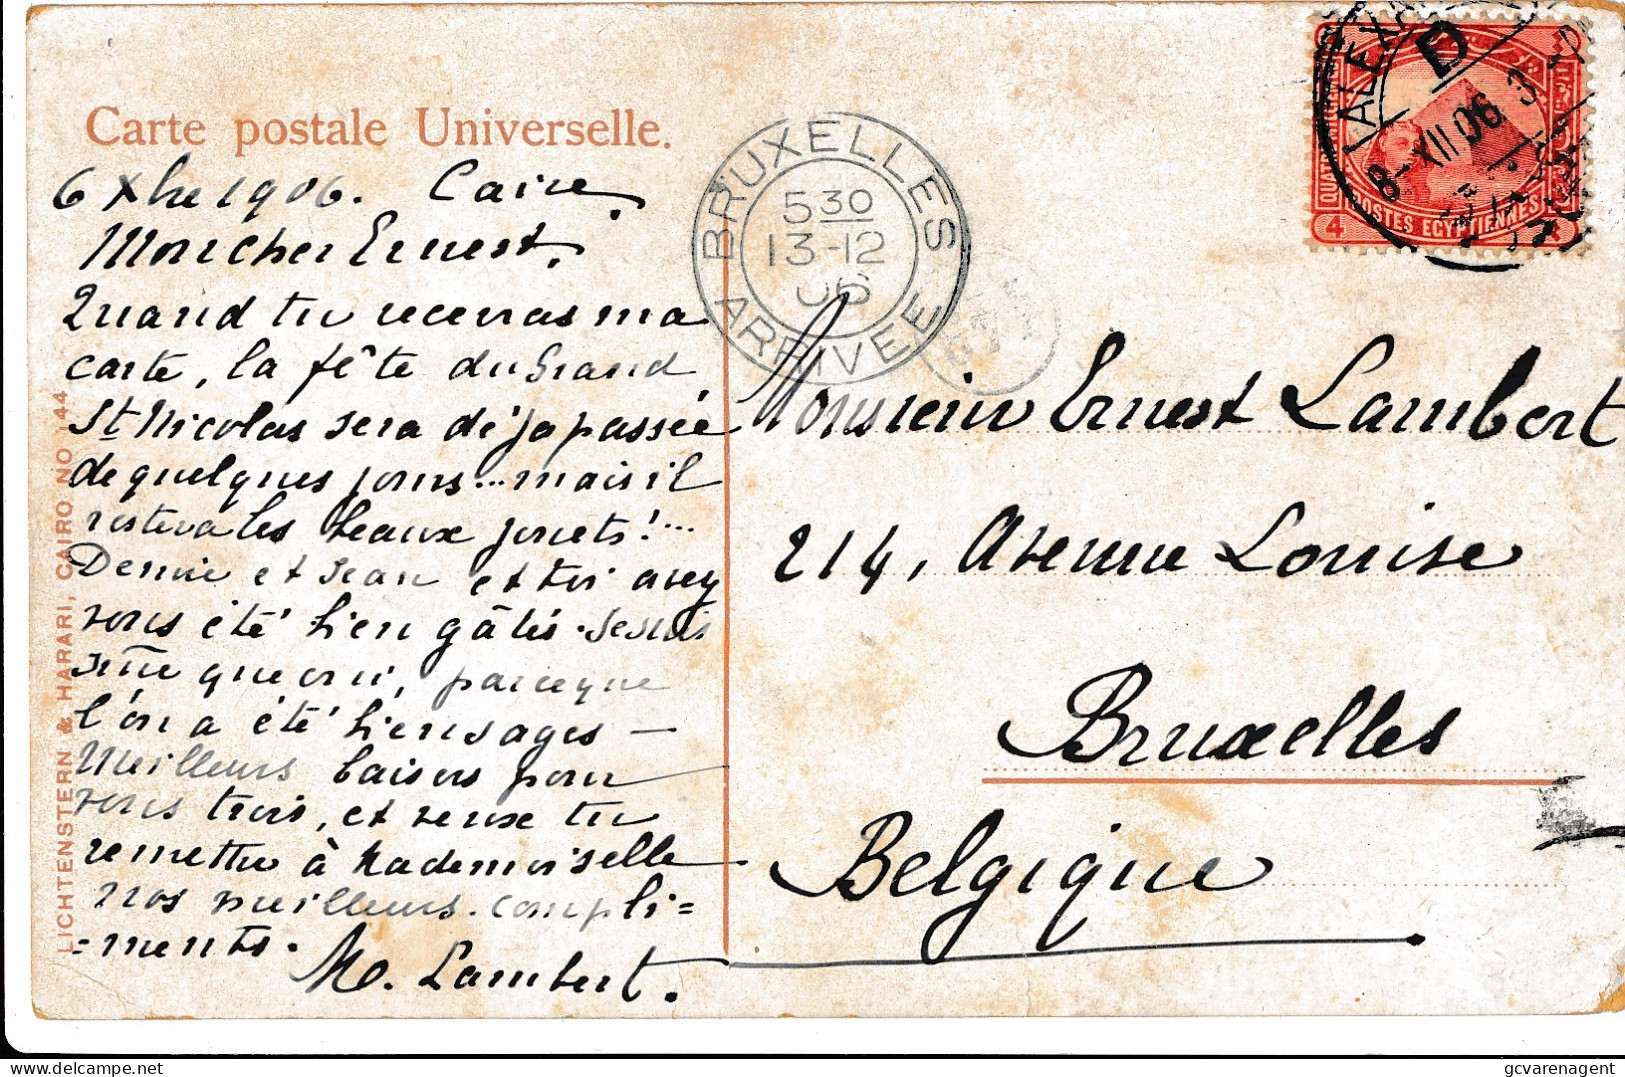 Carte postale Universelle.
6 Xbre 1906. Caire.
Mon cher Ernest.
Quand tu recevras ma
carte, la fête du Grand
St Nicolas sera déja passée
de quelques jours... mais il
restera les beaux jouets!...
Denise et Jean et toi avez
vous été bien gâtés. Je suis
que oui, parceque
l'on a été bien sages —
Meilleurs baisers pour
vous trois, et veux tu
remettre à Mademoiselle
nos meilleurs compli=
=ments.
M. Lambert.
LICHTENSTERN & HARARI, CAIRO NO 144
BRUXELLES
5 30
13-12
06
ARRIVEE
ALEXA
D
8-XII 06
4
POSTES EGYPTIENNES
Monsieur Ernest Lambert
214, Avenue Louise
Bruxelles
Belgique
gcvarenagent